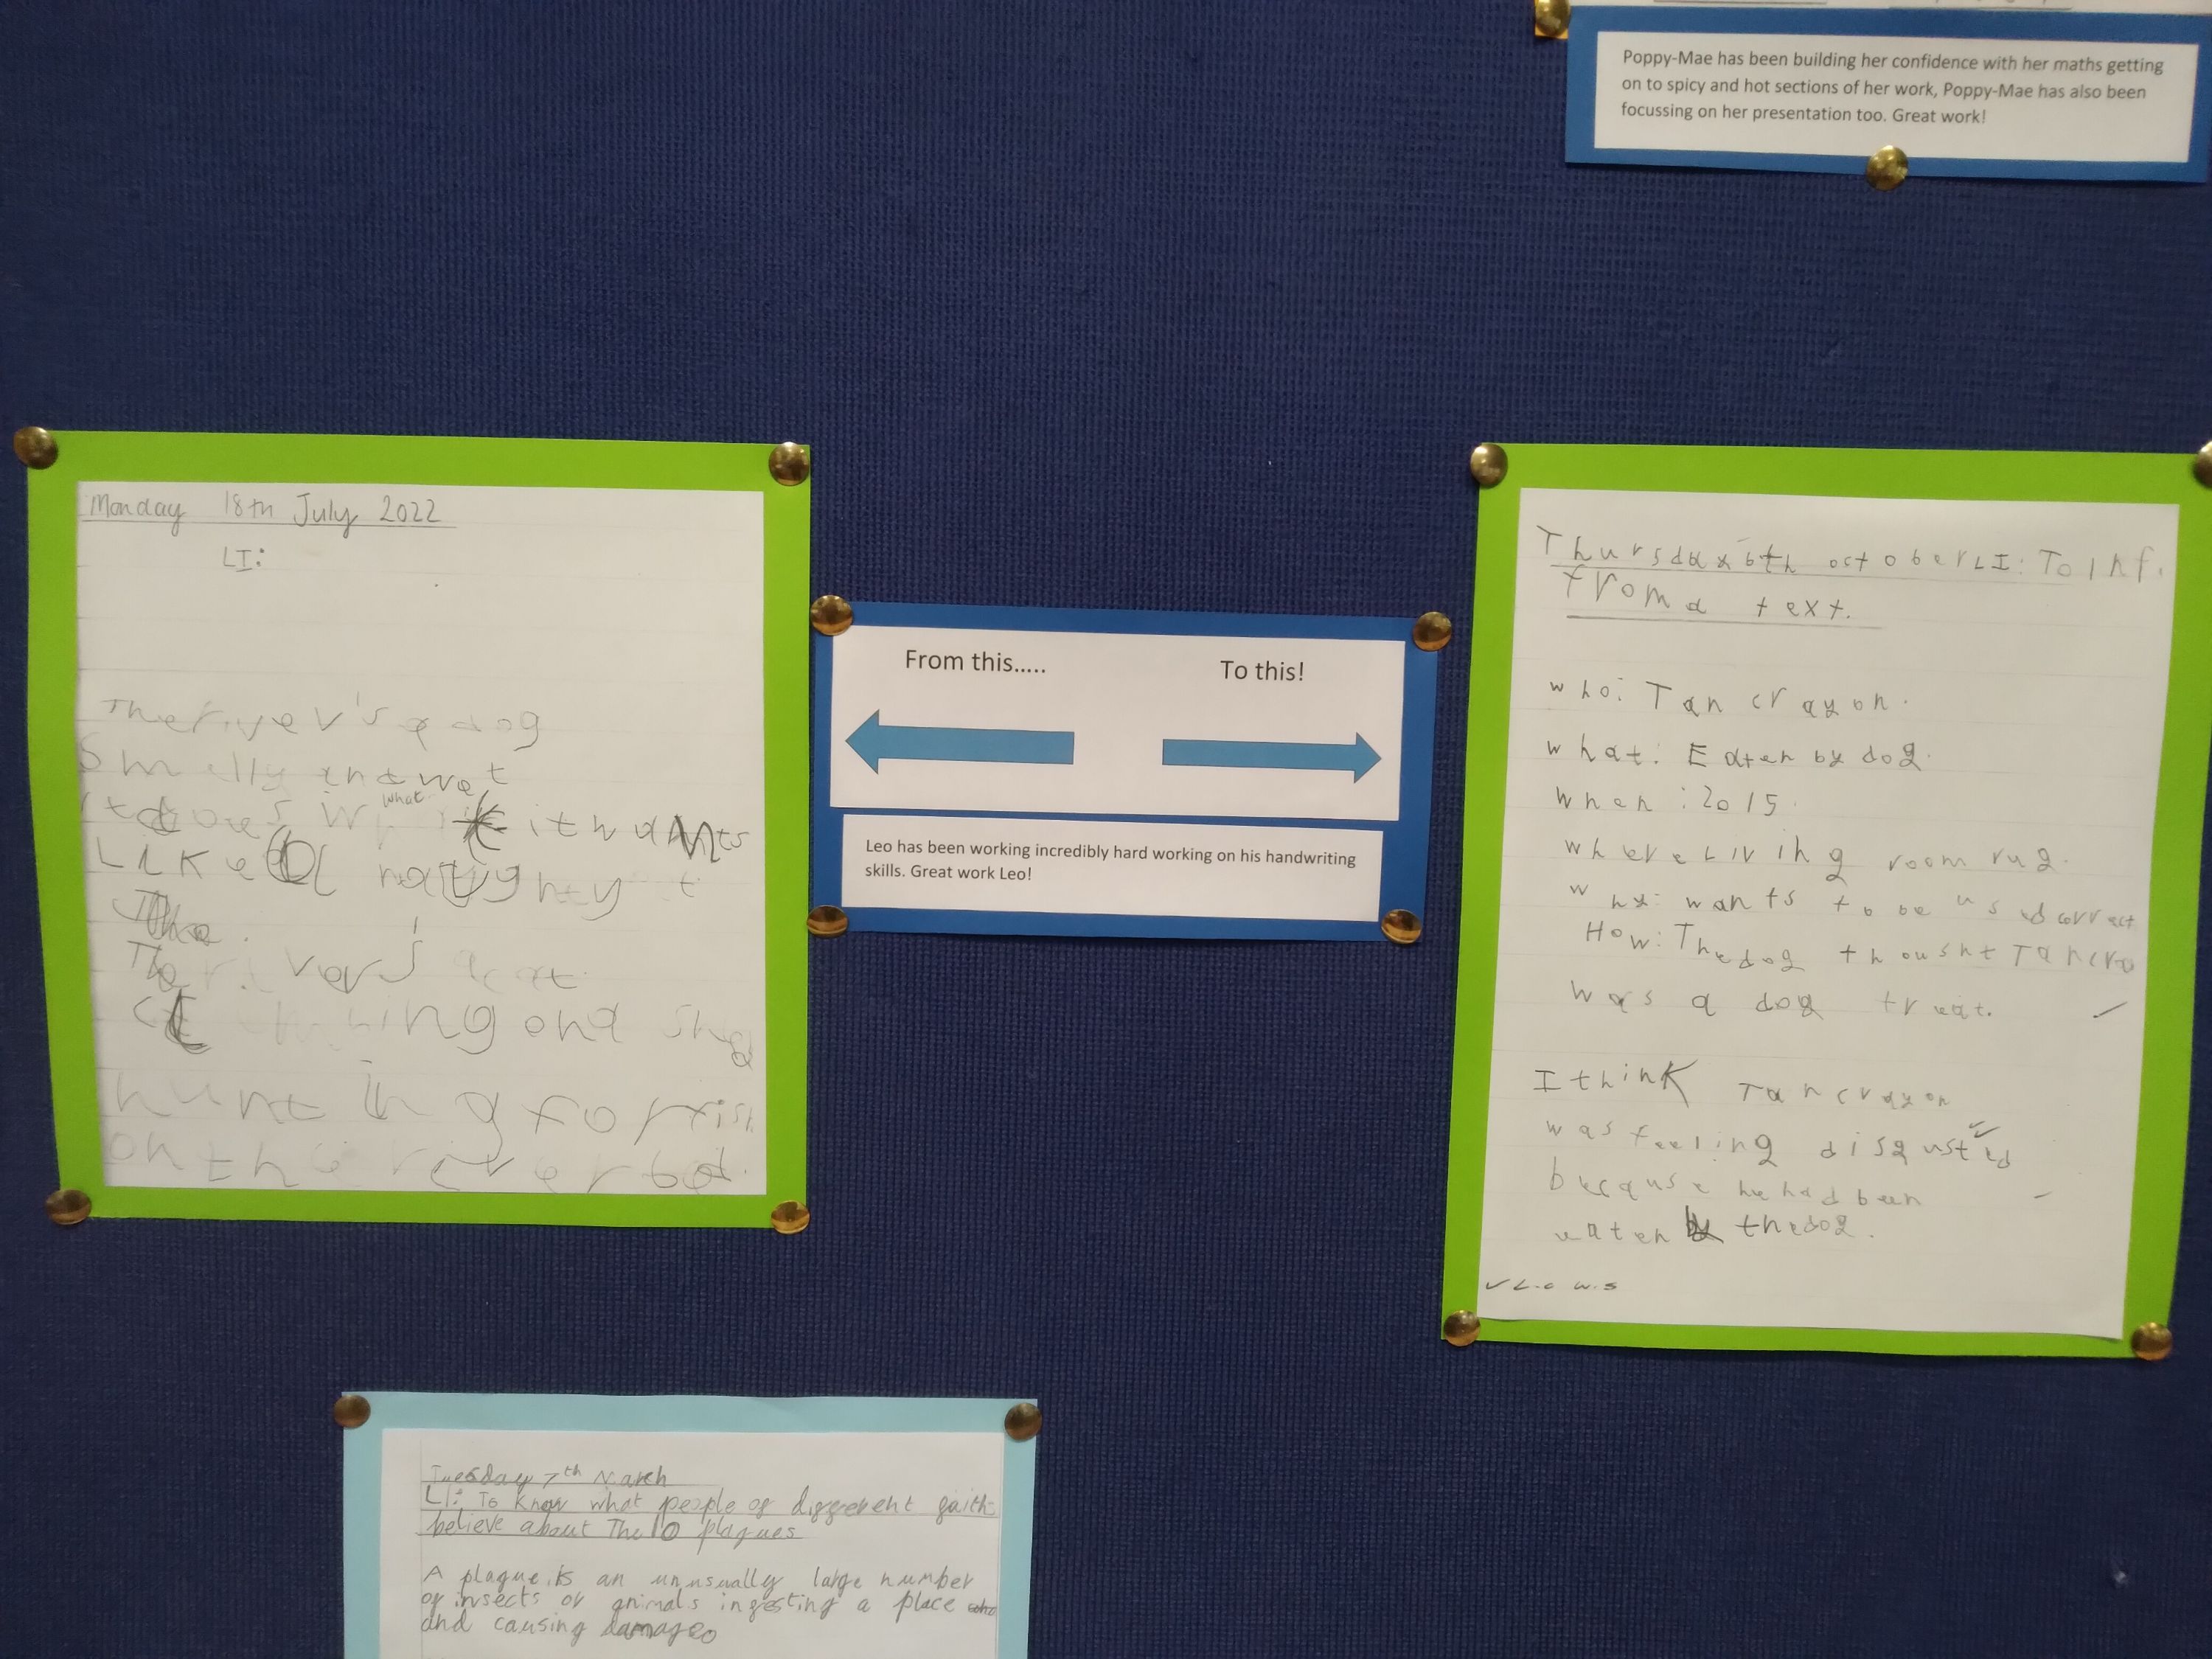 Poppy-Mae has been building her confidence with her maths getting
on to spicy and hot sections of her work, Poppy-Mae has also been
focussing on her presentation too. Great work!
Monday 18th July 2022
LI:
The river's a dog
Smelly and wet
what
it does it wants
Like a naughty
The
The river's a cat
ing and
hunting for fish
on the river bed.
From this.....
To this!
Leo has been working incredibly hard working on his handwriting
skills. Great work Leo!
Thursday 6th october LI: To inf.
from a text.
who: Tan crayon.
what: Eaten by dog.
when: 2015.
where Living room rug.
why: wants to be used correct
How: The dog thought Tan cra
was a dog treat.
I think Tan crayon
was feeling disgusted
because he had been
eaten by the dog.
Tuesday 7th March
LI: To know what people of different faith
believe about The 10 plagues
A plague is an unusually large number
of insects or animals infesting a place
and causing damage